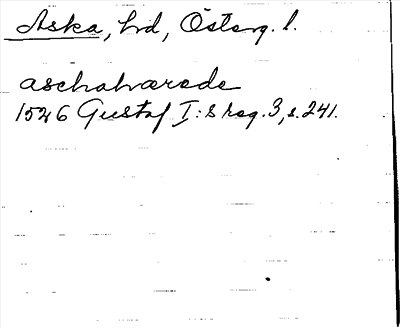 Aska, hd, Österg. l.
aschahærede
1526 Gustaf I:s reg. 3, s. 241.